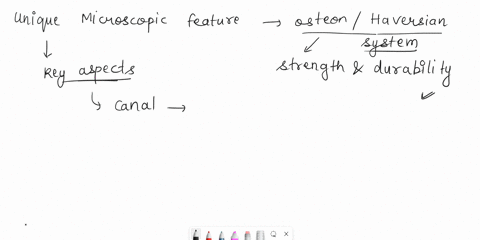 Unique Microscopic feature → osteon / Haversian system
↓ strength & durability ✓
Key aspects
↳ Canal →